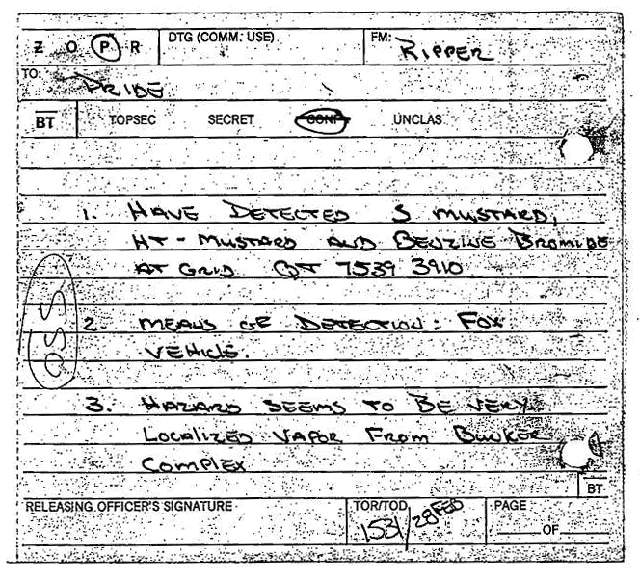 Z O P R DTG (COMM. USE) FM: RIPPER
TO: PRIDE
BT TOPSEC SECRET CONF UNCLAS
1. HAVE DETECTED S MUSTARD,
HT-MUSTARD AND BENZINE BROMIDE
AT GRID QT 7539 3910
OSS
2. MEANS OF DETECTION: FOX
VEHICLE.
3. HAZARD SEEMS TO BE VERY
LOCALIZED VAPOR FROM BUNKER
COMPLEX
BT
RELEASING OFFICER'S SIGNATURE TOR/TOD 1531/28FEB PAGE
OF